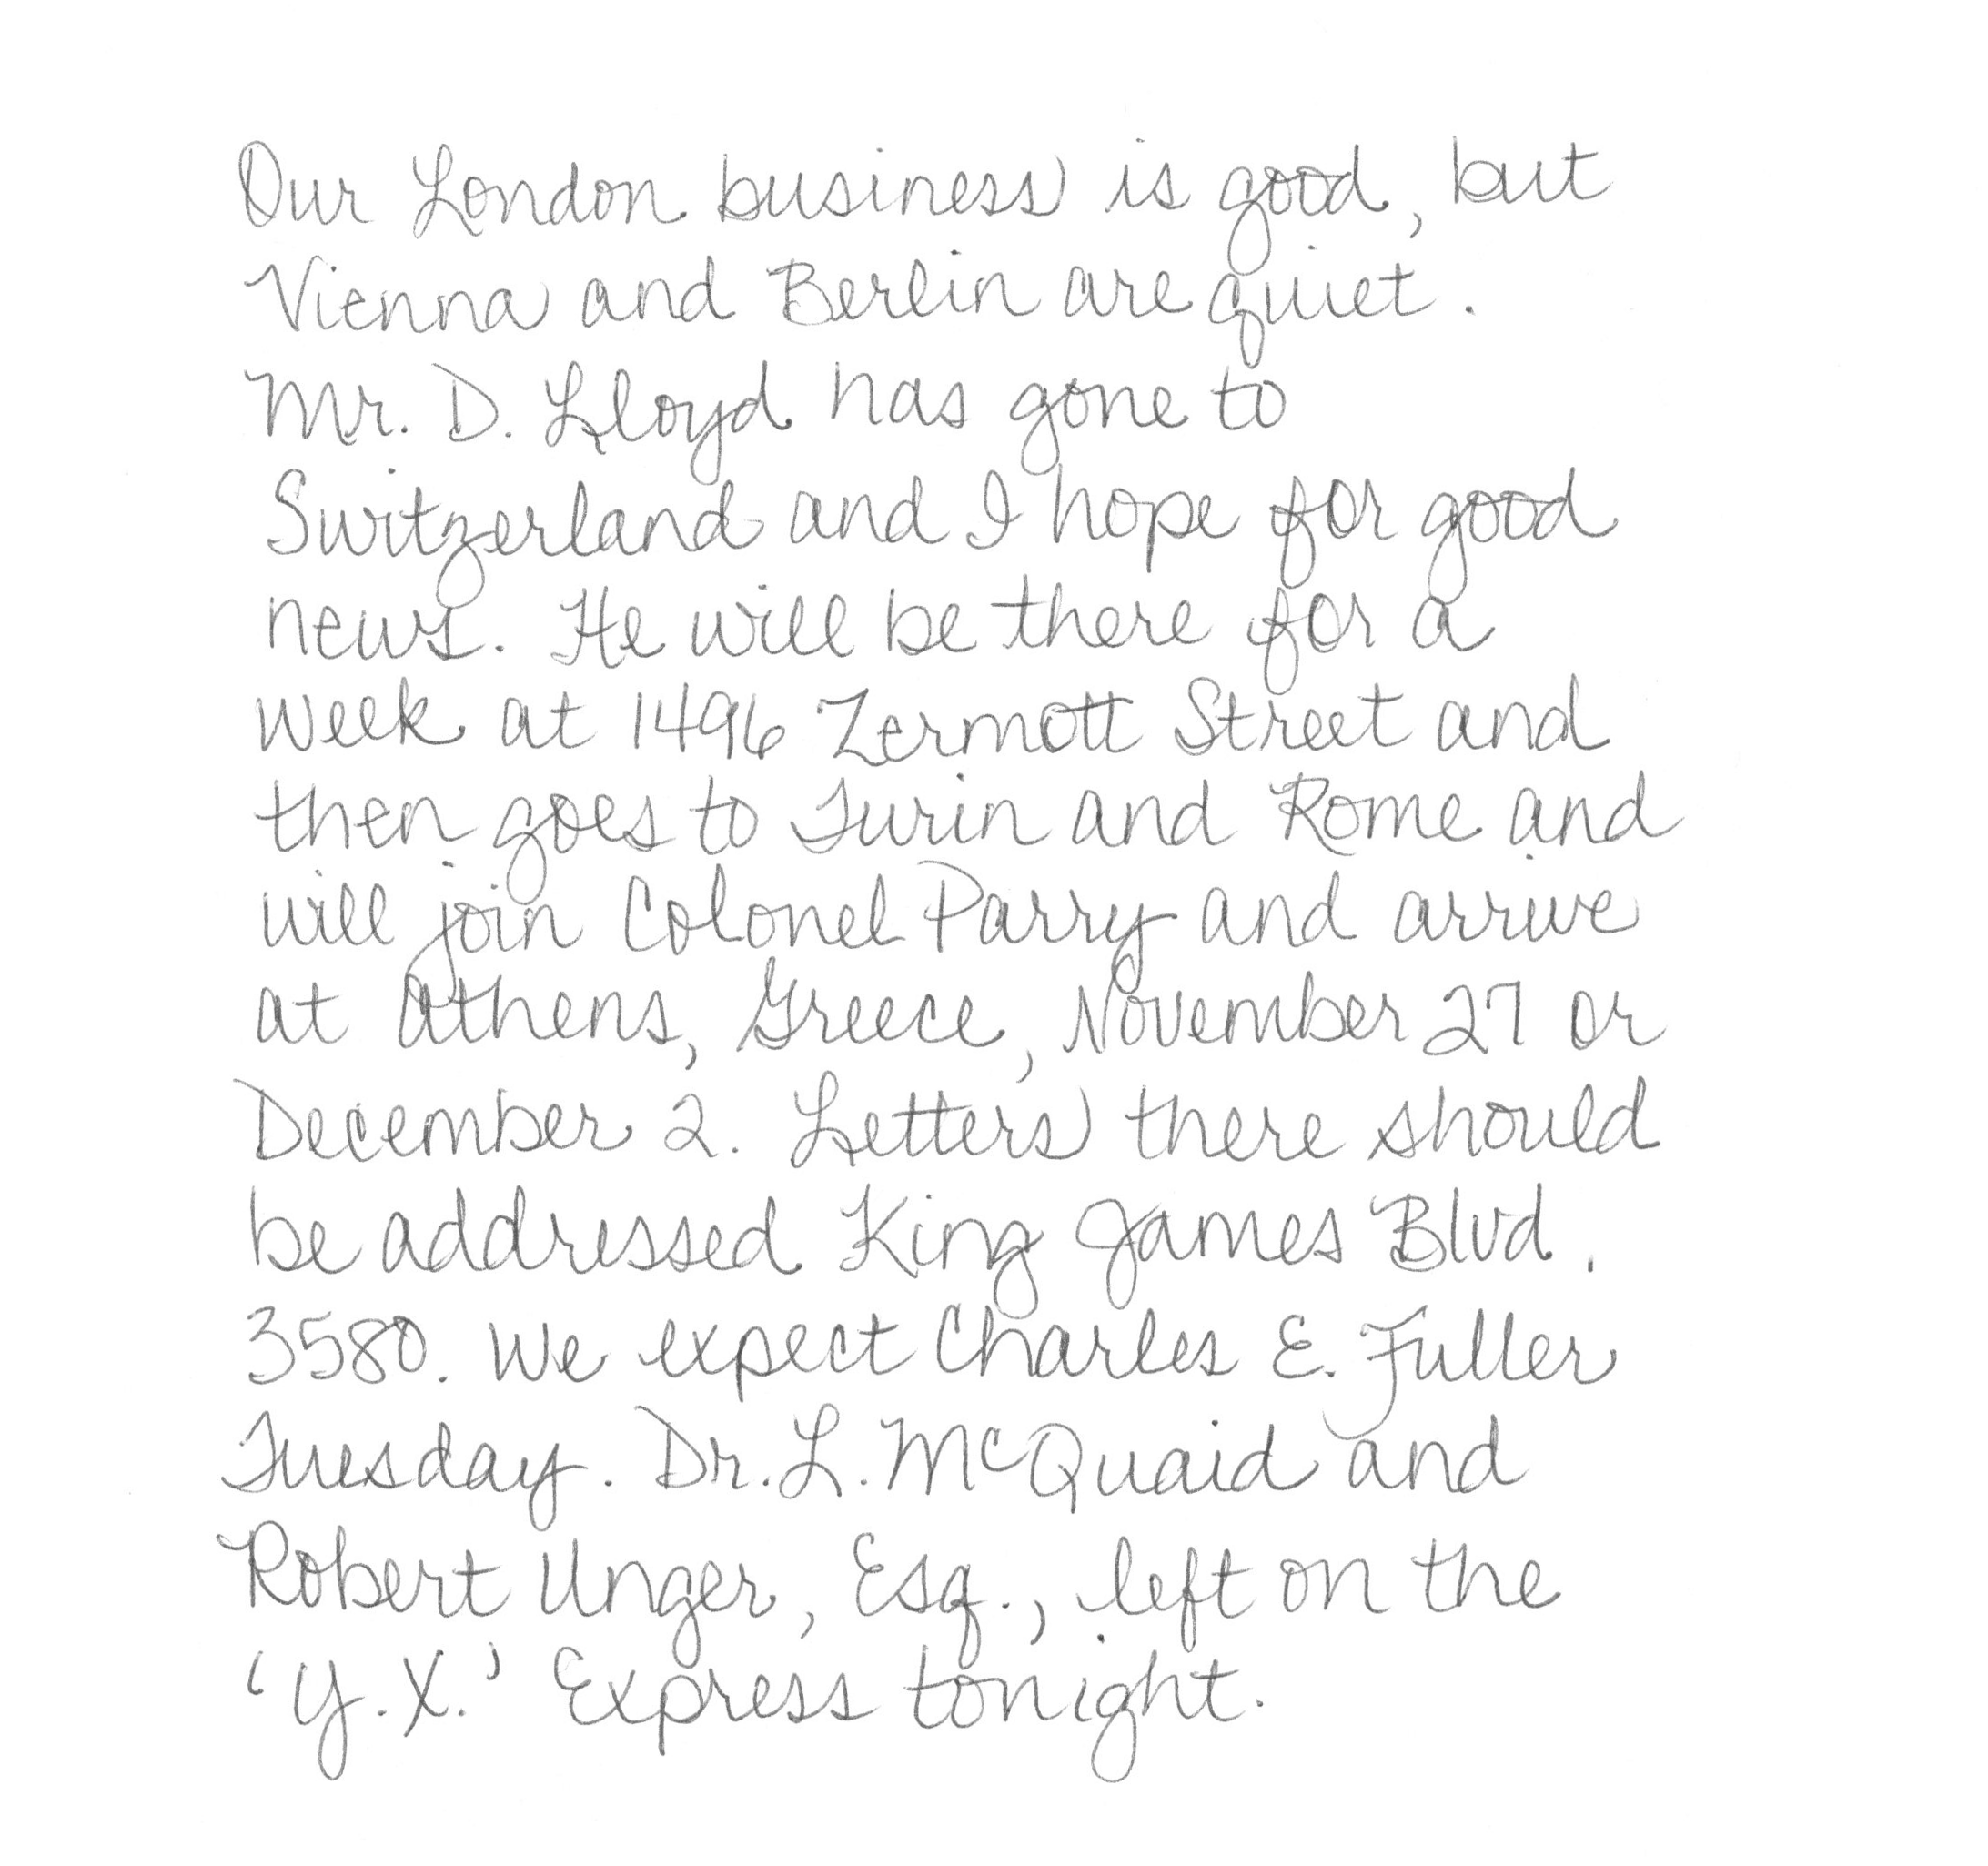 Our London business is good, but
Vienna and Berlin are quiet.
Mr. D. Lloyd has gone to
Switzerland and I hope for good
news. He will be there for a
week at 1496 Zermott Street and
then goes to Turin and Rome and
will join Colonel Parry and arrive
at Athens, Greece, November 27 or
December 2. Letters there should
be addressed King James Blvd.
3580. We expect Charles E. Fuller
Tuesday. Dr. L. McQuaid and
Robert Unger, Esq., left on the
'Y.X.' Express tonight.